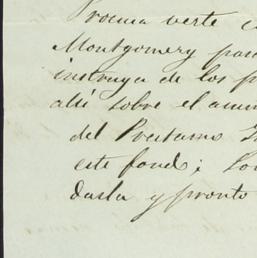 Procura verte c
Montgomery para
instruya de los p
alli sobre el asun
del Prestamo
este fond; Lo
dasla y pronto